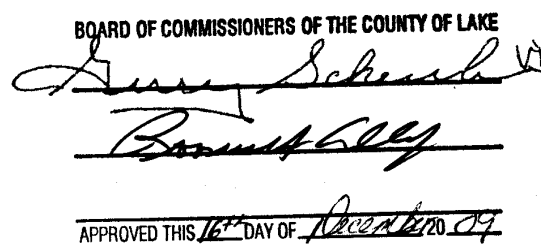 BOARD OF COMMISSIONERS OF THE COUNTY OF LAKE
Gerry Scheub
APPROVED THIS 16th DAY OF December 20 09